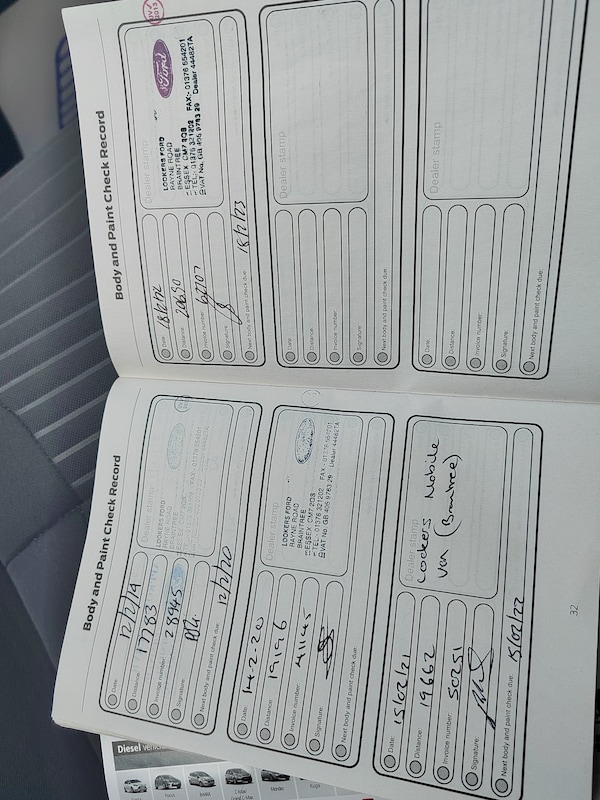 Body and Paint Check Record
Date: 12/2/19
Distance: 17783
Invoice number: 28945
Signature:
Next body and paint check due: 12/2/20
Dealer stamp
LOOKERS FORD
RAYNE ROAD
BRAINTREE
Date: 14-2-20
Distance: 19196
Invoice number: 41145
Signature:
Next body and paint check due:
Dealer stamp
LOOKERS FORD
RAYNE ROAD
BRAINTREE
ESSEX CM7 2QS
TEL: 01376 321202 FAX: 01376 554201
VAT No. GB 406 9783 29 Dealer 44482TA
Date: 15/02/21
Distance: 19662
Invoice number: 50251
Signature:
Next body and paint check due: 15/02/22
Dealer stamp
Lookers Mobile
Van (Braintree)
32
Body and Paint Check Record
Date:
Distance:
Invoice number:
Signature:
Next body and paint check due: 18/2/23
Dealer stamp
Ford
LOOKERS FORD
RAYNE ROAD
BRAINTREE
ESSEX CM7 2QS
TEL: 01376 321202 FAX:- 01376 554201
VAT No. GB 406 9783 29 Dealer 44482TA
Date:
Distance:
Invoice number:
Signature:
Next body and paint check due:
Dealer stamp
Date:
Distance:
Invoice number:
Signature:
Next body and paint check due:
Dealer stamp
Diesel
Focus
Mondeo
Kuga